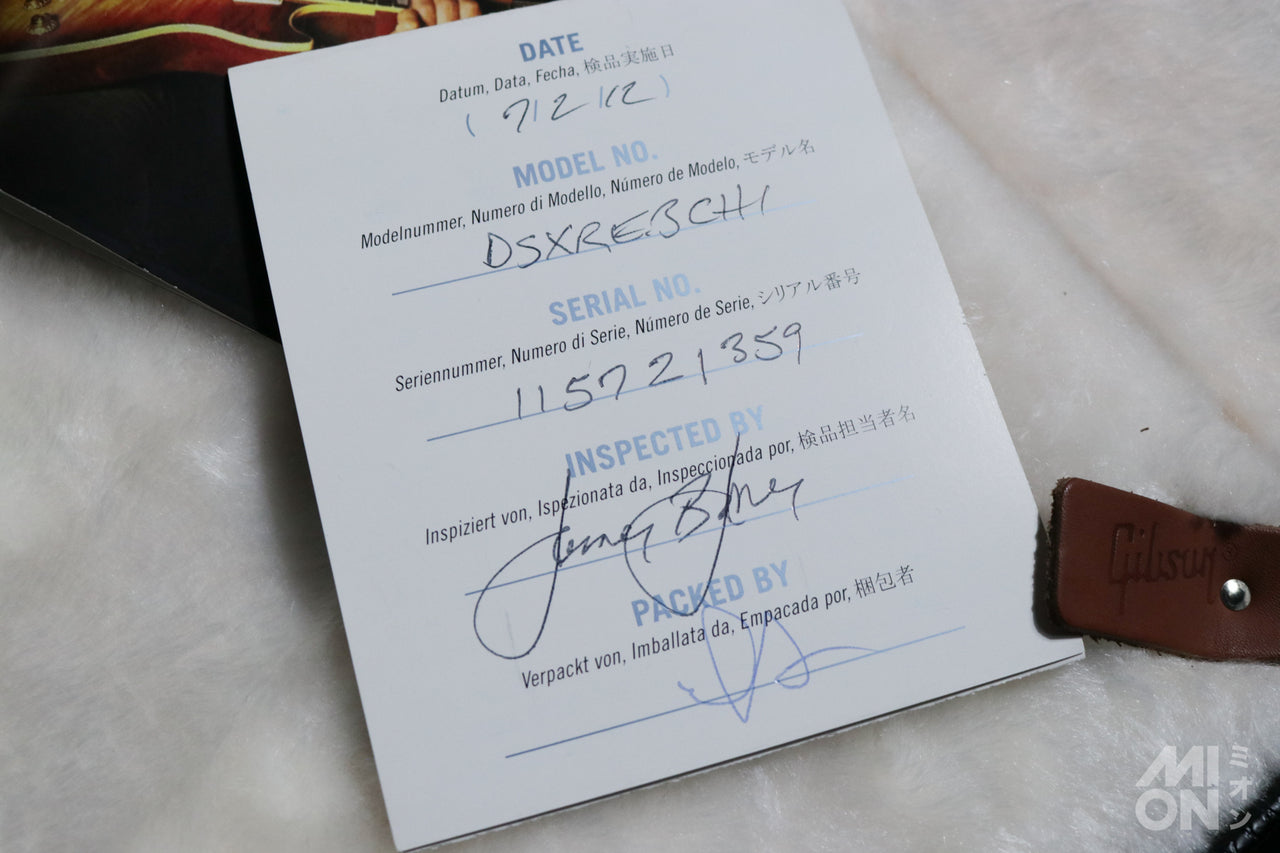 DATE
Datum, Data, Fecha, 検品実施日
( 7/2/12 )
MODEL NO.
Modelnummer, Numero di Modello, Número de Modelo, モデル名
DSXREBCH1
SERIAL NO.
Seriennummer, Numero di Serie, Número de Serie, シリアル番号
115721359
INSPECTED BY
Inspiziert von, Ispezionata da, Inspeccionada por, 検品担当者名
PACKED BY
Verpackt von, Imballata da, Empacada por, 梱包者
Gibson®
MION
ミオン